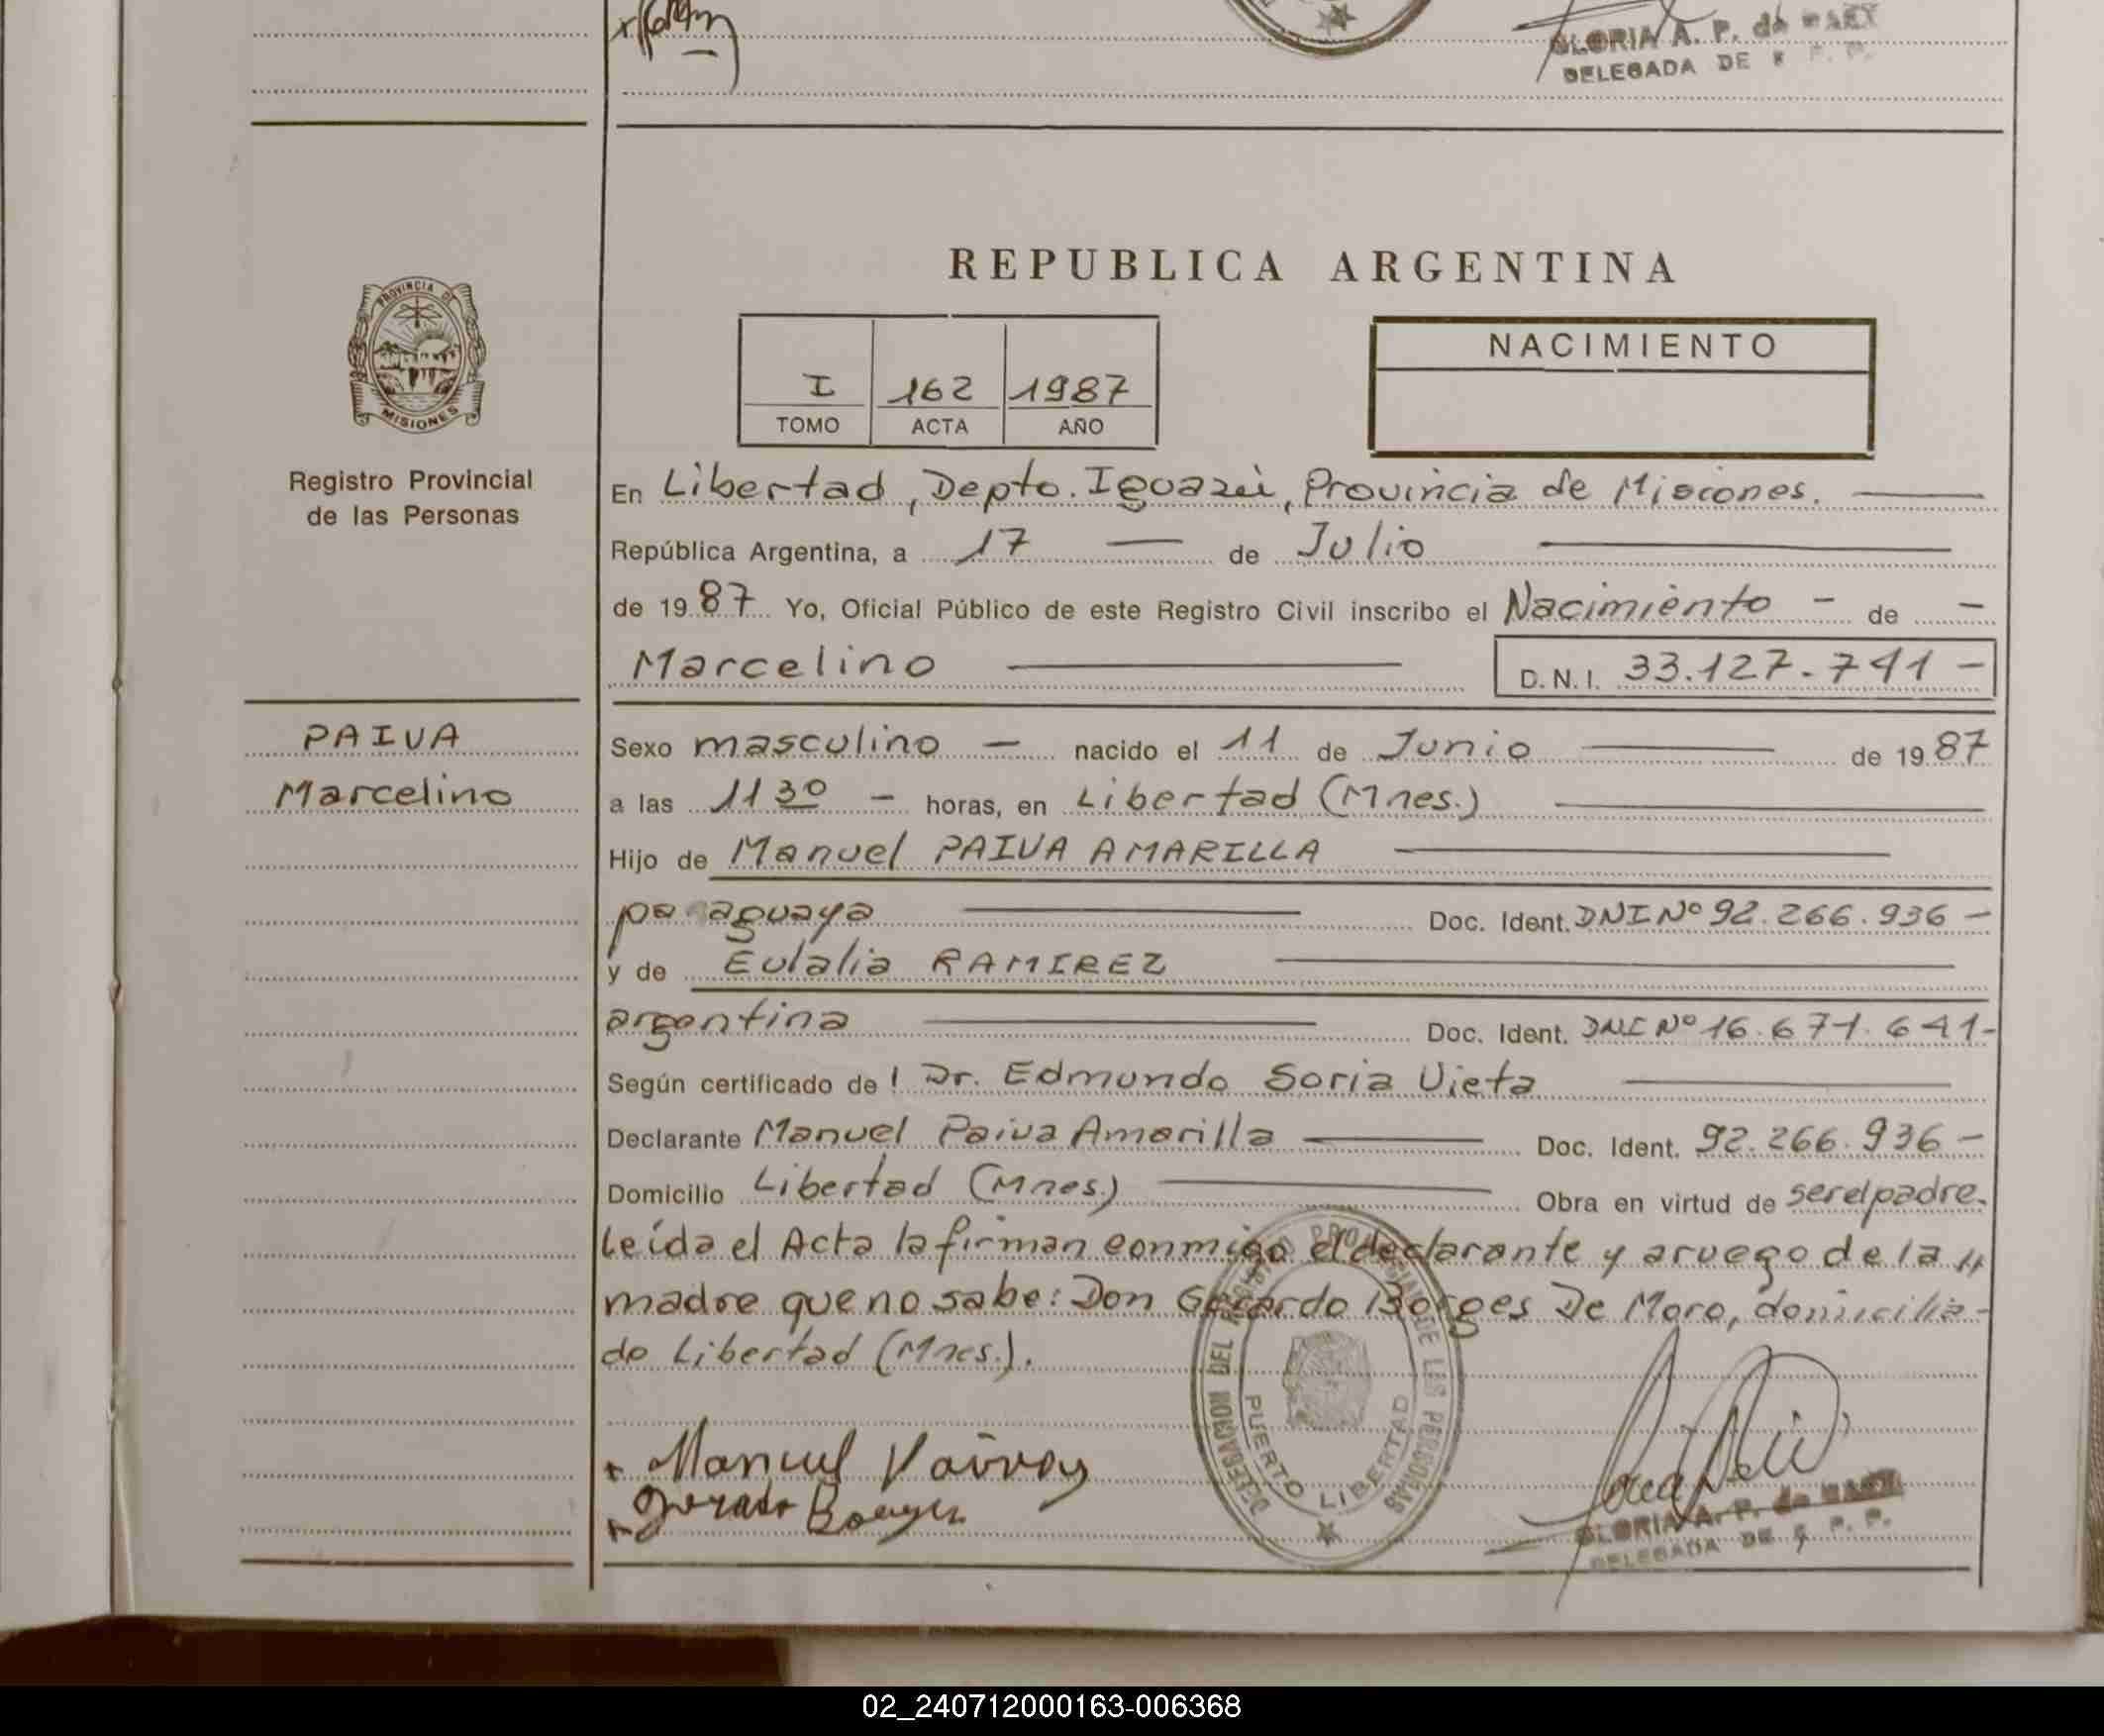 GLORIA A. P. de
DELEGADA DE
REPUBLICA ARGENTINA
PROVINCIA DE
MISIONES
Registro Provincial
de las Personas
I 162 1987
TOMO ACTA AÑO
NACIMIENTO
En Libertad, Depto. Iguazú, Provincia de Misiones.
República Argentina, a 17 de Julio
de 1987 Yo, Oficial Público de este Registro Civil inscribo el Nacimiento - de -
Marcelino D.N.I. 33.127.741 -
PAIVA
Marcelino
Sexo masculino - nacido el 11 de Junio de 1987
a las 11 30 - horas, en Libertad (Mnes.)
Hijo de Manuel PAIVA AMARILLA
pa aguaya Doc. Ident. DNI Nº 92.266.936 -
y de Eulalia RAMIREZ
argentina Doc. Ident. DNI Nº 16.671.641-
Según certificado de ! Dr. Edmundo Soria Vieta
Declarante Manuel Paiva Amarilla Doc. Ident. 92.266.936 -
Domicilio Libertad (Mnes.) Obra en virtud de ser el padre.
Leída el Acta la firman conmigo el declarante y a ruego de la //
madre que no sabe: Don Gerardo Borges De Moro, domicilia-
do Libertad (Mnes.).
DELEGACION DEL REGISTRO PROVINCIAL DE LAS PERSONAS
PUERTO LIBERTAD
+ Manuel
+ Gerardo Borges
GLORIA A. P. de
DELEGADA DE R. P. P.
02_240712000163-006368